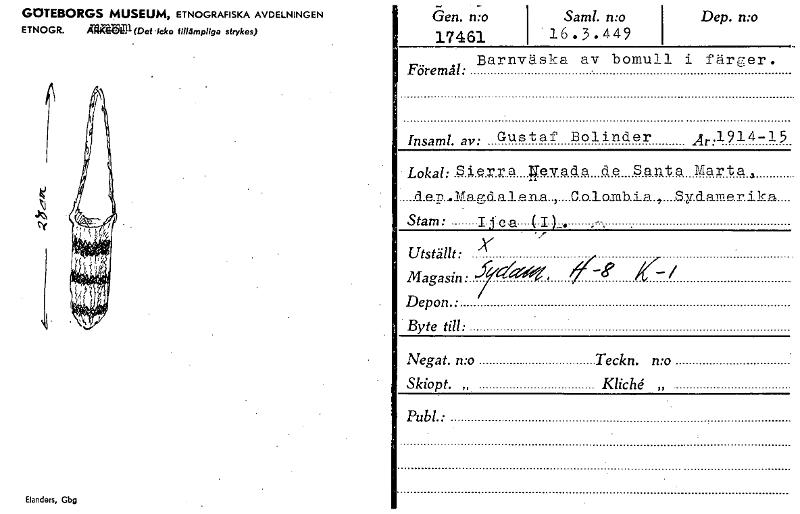 GÖTEBORGS MUSEUM, ETNOGRAFISKA AVDELNINGEN
ETNOGR. ARKEOL. (Det icke tillämpliga strykes)
28cm
Elanders, Gbg
Gen. n:o Saml. n:o Dep. n:o
17461 16.3.449
Föremål: Barnväska av bomull i färger.
Insaml. av: Gustaf Bolinder År: 1914-15
Lokal: Sierra Nevada de Santa Marta,
dep.Magdalena, Colombia, Sydamerika
Stam: Ijca (I).
Utställt: X
Magasin: Sydam. H-8 K-1
Depon.:
Byte till:
Negat. n:o Teckn. n:o
Skiopt. „ Kliché „
Publ.: